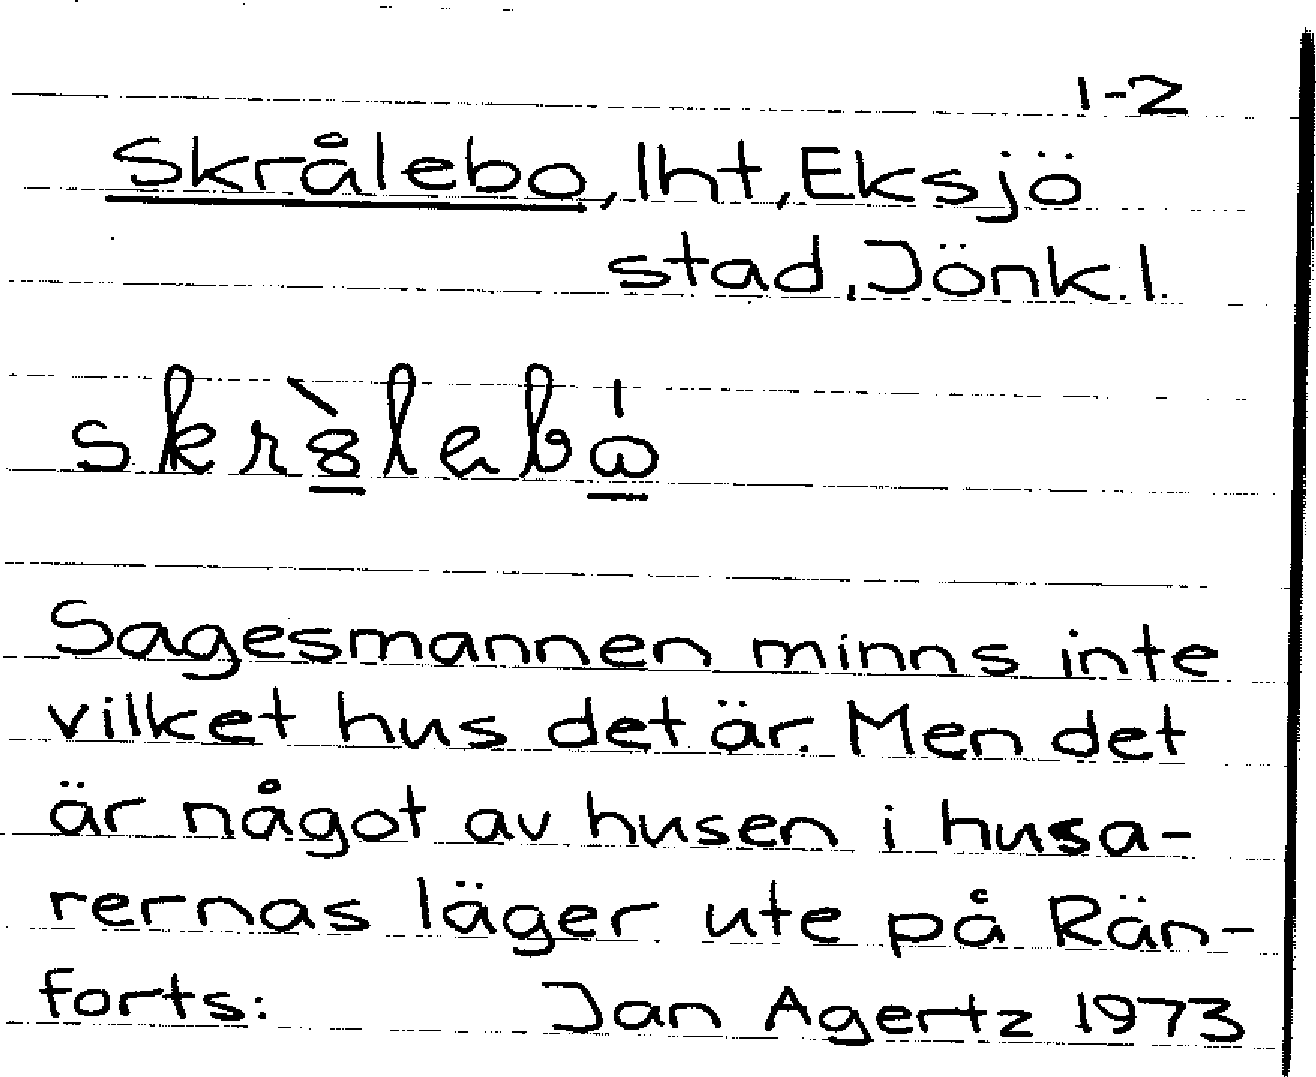 1-2
Skrålebo, lht, Eksjö
stad, Jönk.l.
Sagesmannen minns inte
vilket hus det är. Men det
är något av husen i husa-
rernas läger ute på Rän-
forts: Jan Agertz 1973